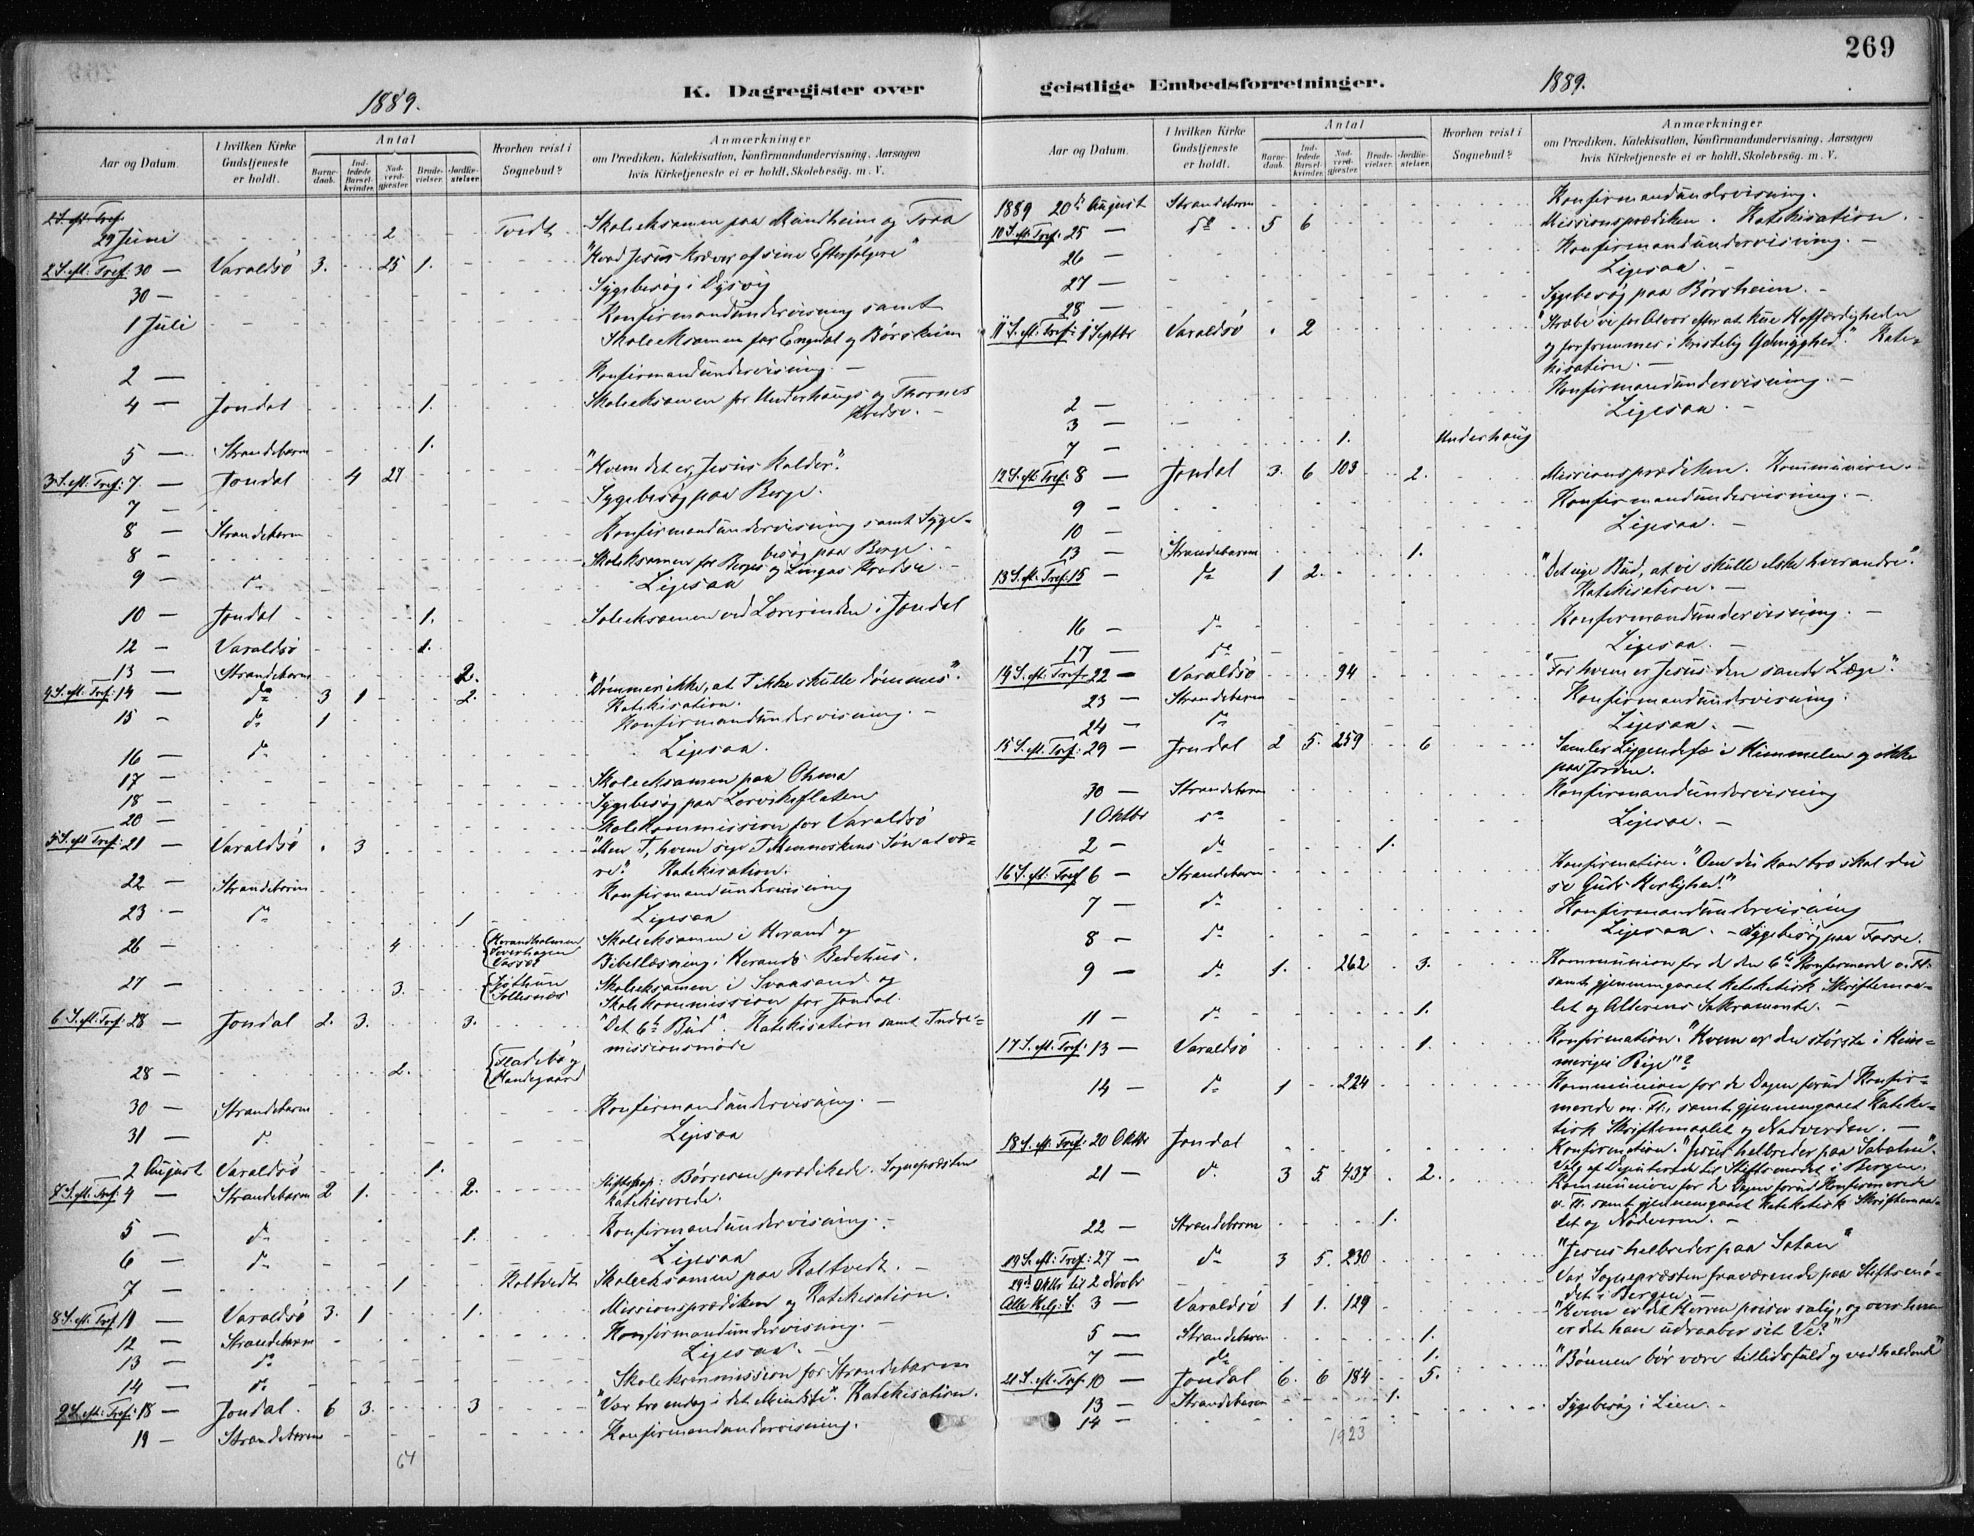 269
K. Dagregister over
geistlige Embedsforretninger.
1889.
1889.
Aar og Datum.
I hvilken Kirke Gudstjeneste er holdt.
Antal
Barnedaab.
Indledede Barselkvinder.
Nadverdgjester.
Brudevielser.
Jordfæstelser.
Hvorhen reist i Sognebud?
Anmærkninger
om Prædiken, Katekisation, Konfirmandundervisning, Aarsagen
hvis Kirketjeneste ei er holdt, Skolebesøg. m. V.
2 S. eft. Tref.
29 Juni 2 Tvedt Skoleeksamen paa Mundheim og Traa
2 S. eft. Tref. 30 — Varaldsø 3. 25 1. "Hvad Jesus kræver af sine Efterfølgere"
30 — Sygebesøg i Dysvig
1 Juli Konfirmandundervisning samt
Skoleeksamen for Engdal og Børsheim
2 — Konfirmandundervisning. —
4 — Jondal 1. Skoleeksamen for Underhaugs og Thornes
Kredse. —
5 — Strandebarm 1.
3 S. eft. Tref: 7 — Jondal 4 27 "Hvem det er, Jesus kalder".
7 — Sygebesøg paa Berge.
8 — Strandebarm Konfirmandundervisning samt Syge-
besøg paa Berge. —
8 — Skoleeksamen for Berges og Lingas Kredse. —
9 — do Ligesaa
10 — Jondal 1. Skoleeksamen ved Lærerinden i Jondal
12 — Varaldsø 1.
13 — Strandebarm 2.
4 S. eft. Tref: 14 — do 3 1 2. "Dømmer ikke, at I ikke skulle dømmes".
Katekisation.
15 — do 1 Konfirmandundervisning. —
16 — do Ligesaa.
17 — Skoleeksamen paa Ohma
18 — Sygebesøg paa Lervikflaten
20 — Skolekommission for Varaldsø
5 S. eft. Tref: 21 — Varaldsø 3 "Men I, hvem sige I Menneskens Søn at væ-
re". Katekisation.
22 — Strandebarm Konfirmandundervisning
23 — do 1 Ligesaa
26 — 4 Skoleeksamen i Herand og
Bibellæsning i Herands Bedehus.
27 — 3. Solesnæs Skoleeksamen i Svaasand og
Skolekommission for Jondal.
6 S. eft: Tref: 28 — Jondal 2. 3. 3. "Det 6te Bud". Katekisation samt Indre-
missionsmøde
28 — 2. Fladebø og
Handegaard
30 — Strandebarm Konfirmandundervisning. —
31 — do Ligesaa
2 August Varaldsø 1.
7 S. eft: Tref: 4 — Strandebarm 2 1. 2. Stiftsprp: Børresen prædikede. Sognepræsten
katekiserede.
5 — do 1. Konfirmandundervisning. —
6 — do Ligesaa
7 — 1 Koltvedt Skoleeksamen paa Koltvedt. —
8 S. eft: Tref. 11 — Varaldsø 3. 1 1. Missionsprædiken og Katekisation.
12 — Strandebarm Konfirmandundervisning. —
13 — do Ligesaa. —
14 — do Skolekommission for Strandebarm
9 S. eft: Tref: 18 — Jondal. 6 3. 3 "Vær tro endog i det Mindste". Katekisation.
19 — Strandebarm Konfirmandundervisning.
64
Aar og Datum.
I hvilken Kirke Gudstjeneste er holdt.
Antal
Barnedaab.
Indledede Barselkvinder.
Nadverdgjester.
Brudevielser.
Jordfæstelser.
Hvorhen reist i Sognebud?
Anmærkninger
om Prædiken, Katekisation, Konfirmandundervisning, Aarsagen
hvis Kirketjeneste ei er holdt, Skolebesøg. m. V.
1889 20de August Strandebarm Konfirmandundervisning.
10 S. eft. Tref: 25 — do 5 6 Missionsprædiken. Katekisation.
26 — Konfirmandundervisning. —
27 — Ligesaa. —
28 — Sygebesøg paa Børsheim. —
11 S. eft. Tref: 1 Septbr Varaldsø 2 "Stræbe vi for Alvor efter at kue Hoffærdigheden
og forfremmes i kristelig Ydmyghed." Kate-
kisation. —
2 — Konfirmandundervisning. —
3 — Ligesaa. —
7 — 1. Underhaug
12 S. eft. Tref: 8 — Jondal 3. 6 103 2. Missionsprædiken. Kommunion. —
9 — Konfirmandundervisning. —
10 — Ligesaa. —
13 — Strandebarm 1.
13 S. eft. Tref: 15 — do 1 2. "Det nye Bud, at vi skulle elske hverandre".
Katekisation. —
16 — do Konfirmandundervisning. —
17 — do Ligesaa. —
14 S. eft: Tref: 22 — Varaldsø 94 "For hvem er Jesus den sande Læge".
23 — Strandebarm Konfirmandundervisning.
24 — do Ligesaa. —
15 S. eft: Tref: 29 — Jondal 2 5. 259 6 Samler Liggendefæ i Himmelen og ikke
paa Jorden.
30 — Strandebarm Konfirmandundervisning
1 Oktbr do Ligesaa. —
2 — do 1.
16 S. eft: Tref 6 — Strandebarm Konfirmation. "Om du kan tro skal du
se Guds Herlighed."
7 — do Konfirmandundervisning
8 — do Ligesaa. — Sygebesøg paa Fosse.
9 — do 1. 262 3. Kommunion for de den 6te Konfirmerede o. Fl.
samt gjennemgaaet katekistisk Skriftemaa-
let og Alterens Sakramente. —
11 — do 1.
17 S. eft: Tref: 13 — Varaldsø 1. Konfirmation. "Hvem er den største i Him-
meriges Rige"?
14 — do 1 224 Kommunion for de Dagen forud Konfir-
merede m. Fl., samt gjennemgaaet Kateke-
tisk Skriftemaalet og Nadverden. —
18 S. eft. Tref: 20 Oktbr Jondal Konfirmation. "Jesus helbreder paa Sabaten".
Valg af til Stiftsmødet i Bergen.
21 — do 3 5. 437 2. Kommunion for de Dagen forud Konfirmerede
o. Fl. samt gjennemgaaet Katekistisk Skriftemaa-
let og Nadveren. —
22 — Strandebarm 1.
19 S. eft: Tref: 27 — do 3 5. 230 "Jesus helbreder paa Satan"
29de Oktbr til 2 Novbr Var Sognepræsten fraværende paa Stiftsmø-
det i Bergen —
Alle Helg: S. 3 — Varaldsø 1 1. 129 "Hvem er det Herren priser salig, og over hvem
er det han udraaber sit Ve?"
5 — Strandebarm 1.
7 — do 1.
21 S. eft. Tref 10 — Jondal 6. 6 184 5. "Bønnen bør være tillidsfuld og vedholdende"
13 — Strandebarm 1.
14 — Sygebesøg i Lien. —
1923